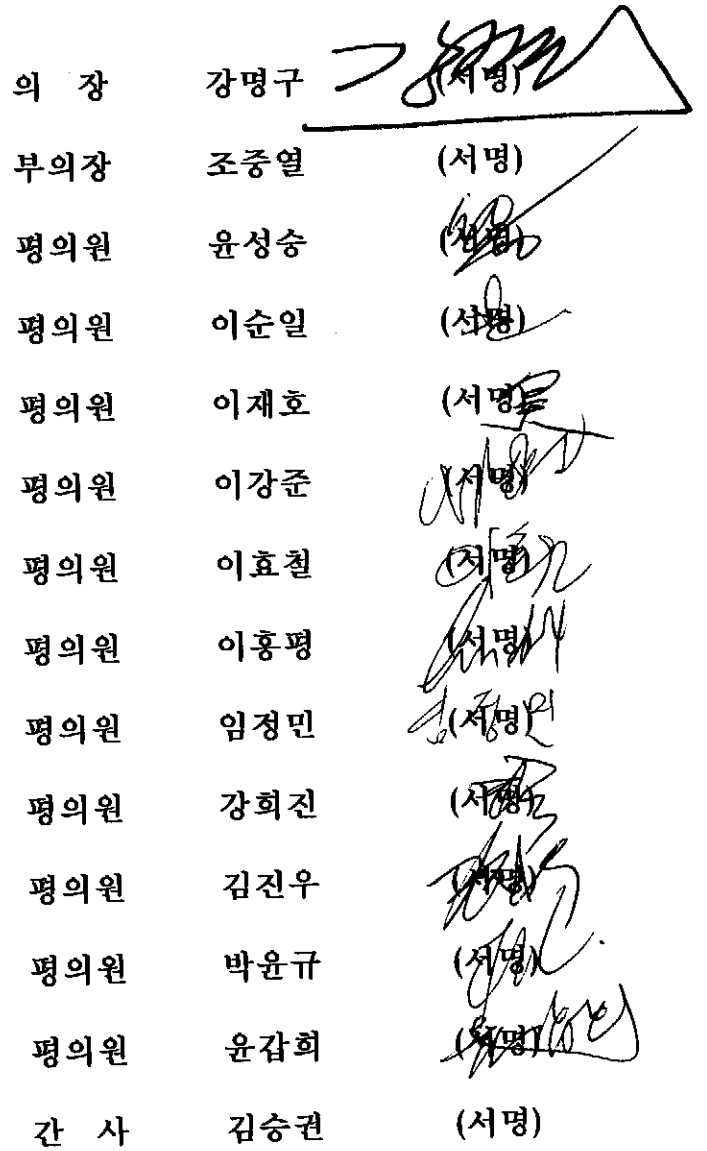 의 장 강명구 (서명)
부의장 조중열 (서명)
평의원 윤성승 (서명)
평의원 이순일 (서명)
평의원 이재호 (서명)
평의원 이강준 (서명)
평의원 이효철 (서명)
평의원 이홍평 (서명)
평의원 임정민 (서명)
평의원 강희진 (서명)
평의원 김진우 (서명)
평의원 박윤규 (서명)
평의원 윤갑희 (서명)
간 사 김승권 (서명)